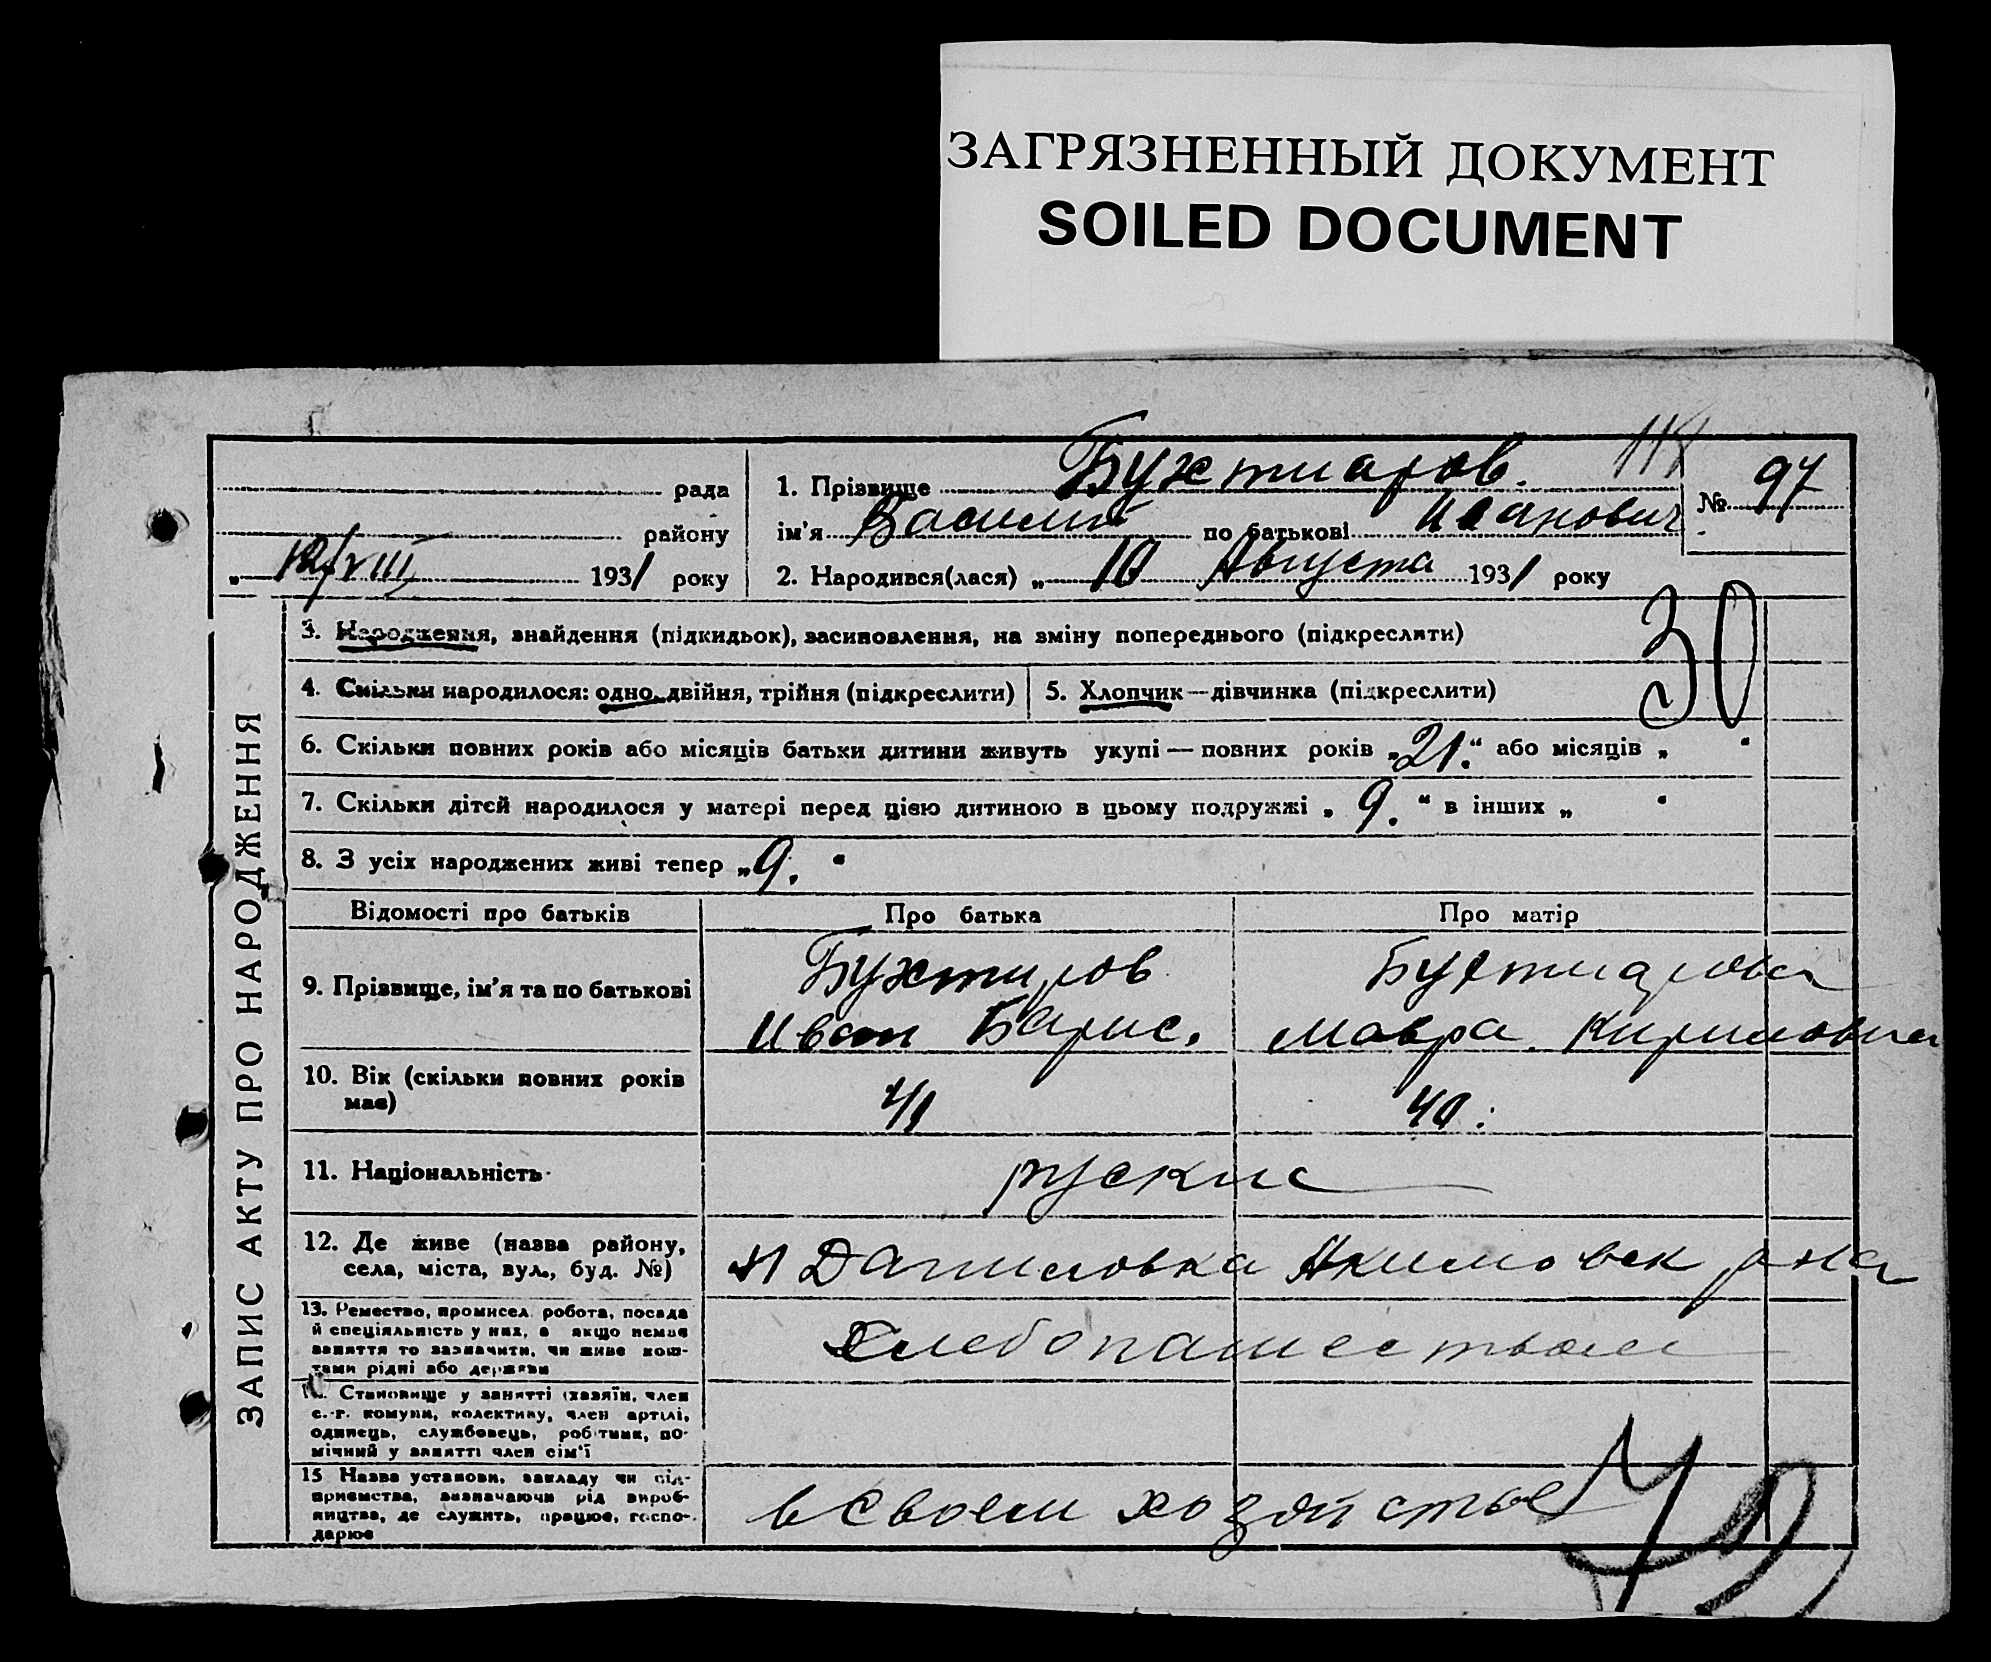 ЗАГРЯЗНЕННЫЙ ДОКУМЕНТ
SOILED DOCUMENT
рада
району
„ 12/VIII 1931 року
1. Прізвище Бухтиаров.
ім'я Василий по батькові Иванович
2. Народився(лася) „ 10 Августа 1931 року
№ 97
ЗАПИС АКТУ ПРО НАРОДЖЕННЯ
3. Народження, знайдення (підкидьок), засиновлення, на зміну попереднього (підкреслити)
30
4. Скільки народилося: одно, двійня, трійня (підкреслити)
5. Хлопчик—дівчинка (підкреслити)
6. Скільки повних років або місяців батьки дитини живуть укупі — повних років „21.“ або місяців „ “
7. Скільки дітей народилося у матері перед цією дитиною в цьому подружжі „ 9. “ в інших „ “
8. З усіх народжених живі тепер „9. “
Відомості про батьків Про батька Про матір
9. Прізвище, ім'я та по батькові
Бухтиров
Иван Барис.
Бухтиарова
Мавра Кириловна
10. Вік (скільки повних років
має)
41 40.
11. Національність
руские
12. Де живе (назва району,
села, міста, вул., буд. №)
Даниловка Якимовск р-на
13. Ремество, промисел. робота, посада
й спеціяльність у них, а якщо немає
заняття то зазначити, чи живе кош-
тами рідні або держави
Хлебопашеством
14. Становище у занятті (хазяїн, член
с.-г. комуни, колективу, член артілі,
одинець, службовець, робітник, по-
мічний у занятті член сім'ї
15 Назва установи, закладу чи під-
приємства, визначаючи рід вироб-
ництва, де служить, працює, госпо-
дарює
в своем хозяйстве